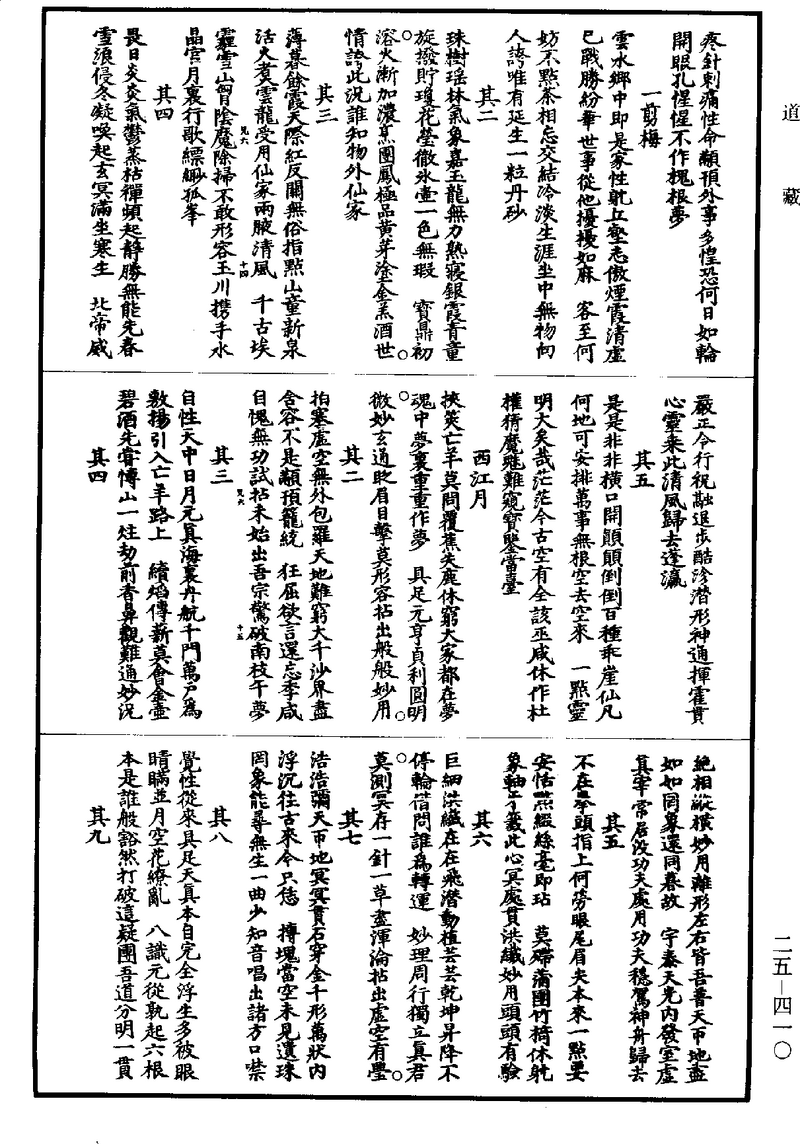 道藏
疼針刺痛性命顢頇外事多惶恐何日如輪
開眼孔惺惺不作槐根夢
一剪梅
雲水鄉中即是家性躭丘壑志傲煙霞清虛
已戰勝紛華世事從他擾擾如麻 客至何
妨不點茶相忘交結冷淡生涯坐中無物向
人誇唯有延生一粒丹砂
其二
珠樹瑶林氣象嘉玉龍無力熟寢銀霞青童
旋撥貯瓊花瑩徹氷壷一色無瑕 寶鼎初
溶火漸加濃烹團鳳極品黃芽塗金羔酒世
情誇此況誰知物外仙家
其三
薄暮餘霞天際紅反關無俗指點山童新泉
活火煮雲龍受用仙家兩腋清風 千古埃
霾雪山胷陰魔除掃不敢形容玉川携手水
晶宫月裏行歌縹緲孤峯
其四
畏日炎炎氣鬱蒸枯禪頻起靜勝無能先春
雪浪侵冬凝喚起玄冥滿坐寒生 北帝威
嚴正令行祝融退步酷沴潜形神通揮霍貫
心靈來此清風歸去蓬瀛
其五
是是非非橫口開顛顛倒倒百種乖崖仙凡
何地可安排萬事無根空去空來 一點靈
明大矣哉茫茫今古空有全該巫咸休作杜
權猜魔魅難窺寶鑒當臺
西江月
挾筴亡羊莫問覆蕉失鹿休窮大家都在夢
魂中夢裏重重作夢 具足元亨貞利圓明
微妙玄通眨眉目擊莫形容拈出般般妙用
其二
拍塞虛空無外包羅天地難窮大千沙界盡
含容不是顢頇籠統 狂屈欲言還忘季咸
自愧無功試拈未始出吾宗驚破南枝午夢
其三
自性天中日月元眞海裏丹航千門萬户為
敷揚引入亡羊路上 續焰傳薪莫會金壷
碧酒先嘗博山一炷劫前香鼻觀難通妙況
其四
絶相縱橫妙用離形左右皆吾普天帀地盡
如如罔象還同眷故 宇泰天光内發室虛
眞宰常居没功夫處用功夫穩駕神舟歸去
其五
不在拳頭指上何勞眼尾眉夫本來一點要
安恬黑綴絲毫即玷 莫嘑蒲團竹椅休躭
象軸牙籤此心冥處貫洪纎妙用頭頭有驗
其六
巨細洪纎在在飛潜動植芸芸乾坤昇降不
停輪借問誰為轉運 妙理周行獨立眞君
莫測冥存一針一草盡渾淪拈出虛空有璺
其七
浩浩瀰天帀地冥冥貫石穿金千形萬狀内
浮沉往古來今只恁 摶塊當空未見遺珠
罔象能尋無生一曲少知音唱出諸方口噤
其八
覺性從來具足天眞本自完全浮生多被眼
睛瞞並月空花繚亂 八識元從孰起六根
本是誰般豁然打破這疑團吾道分明一貫
其九
二五—四一〇